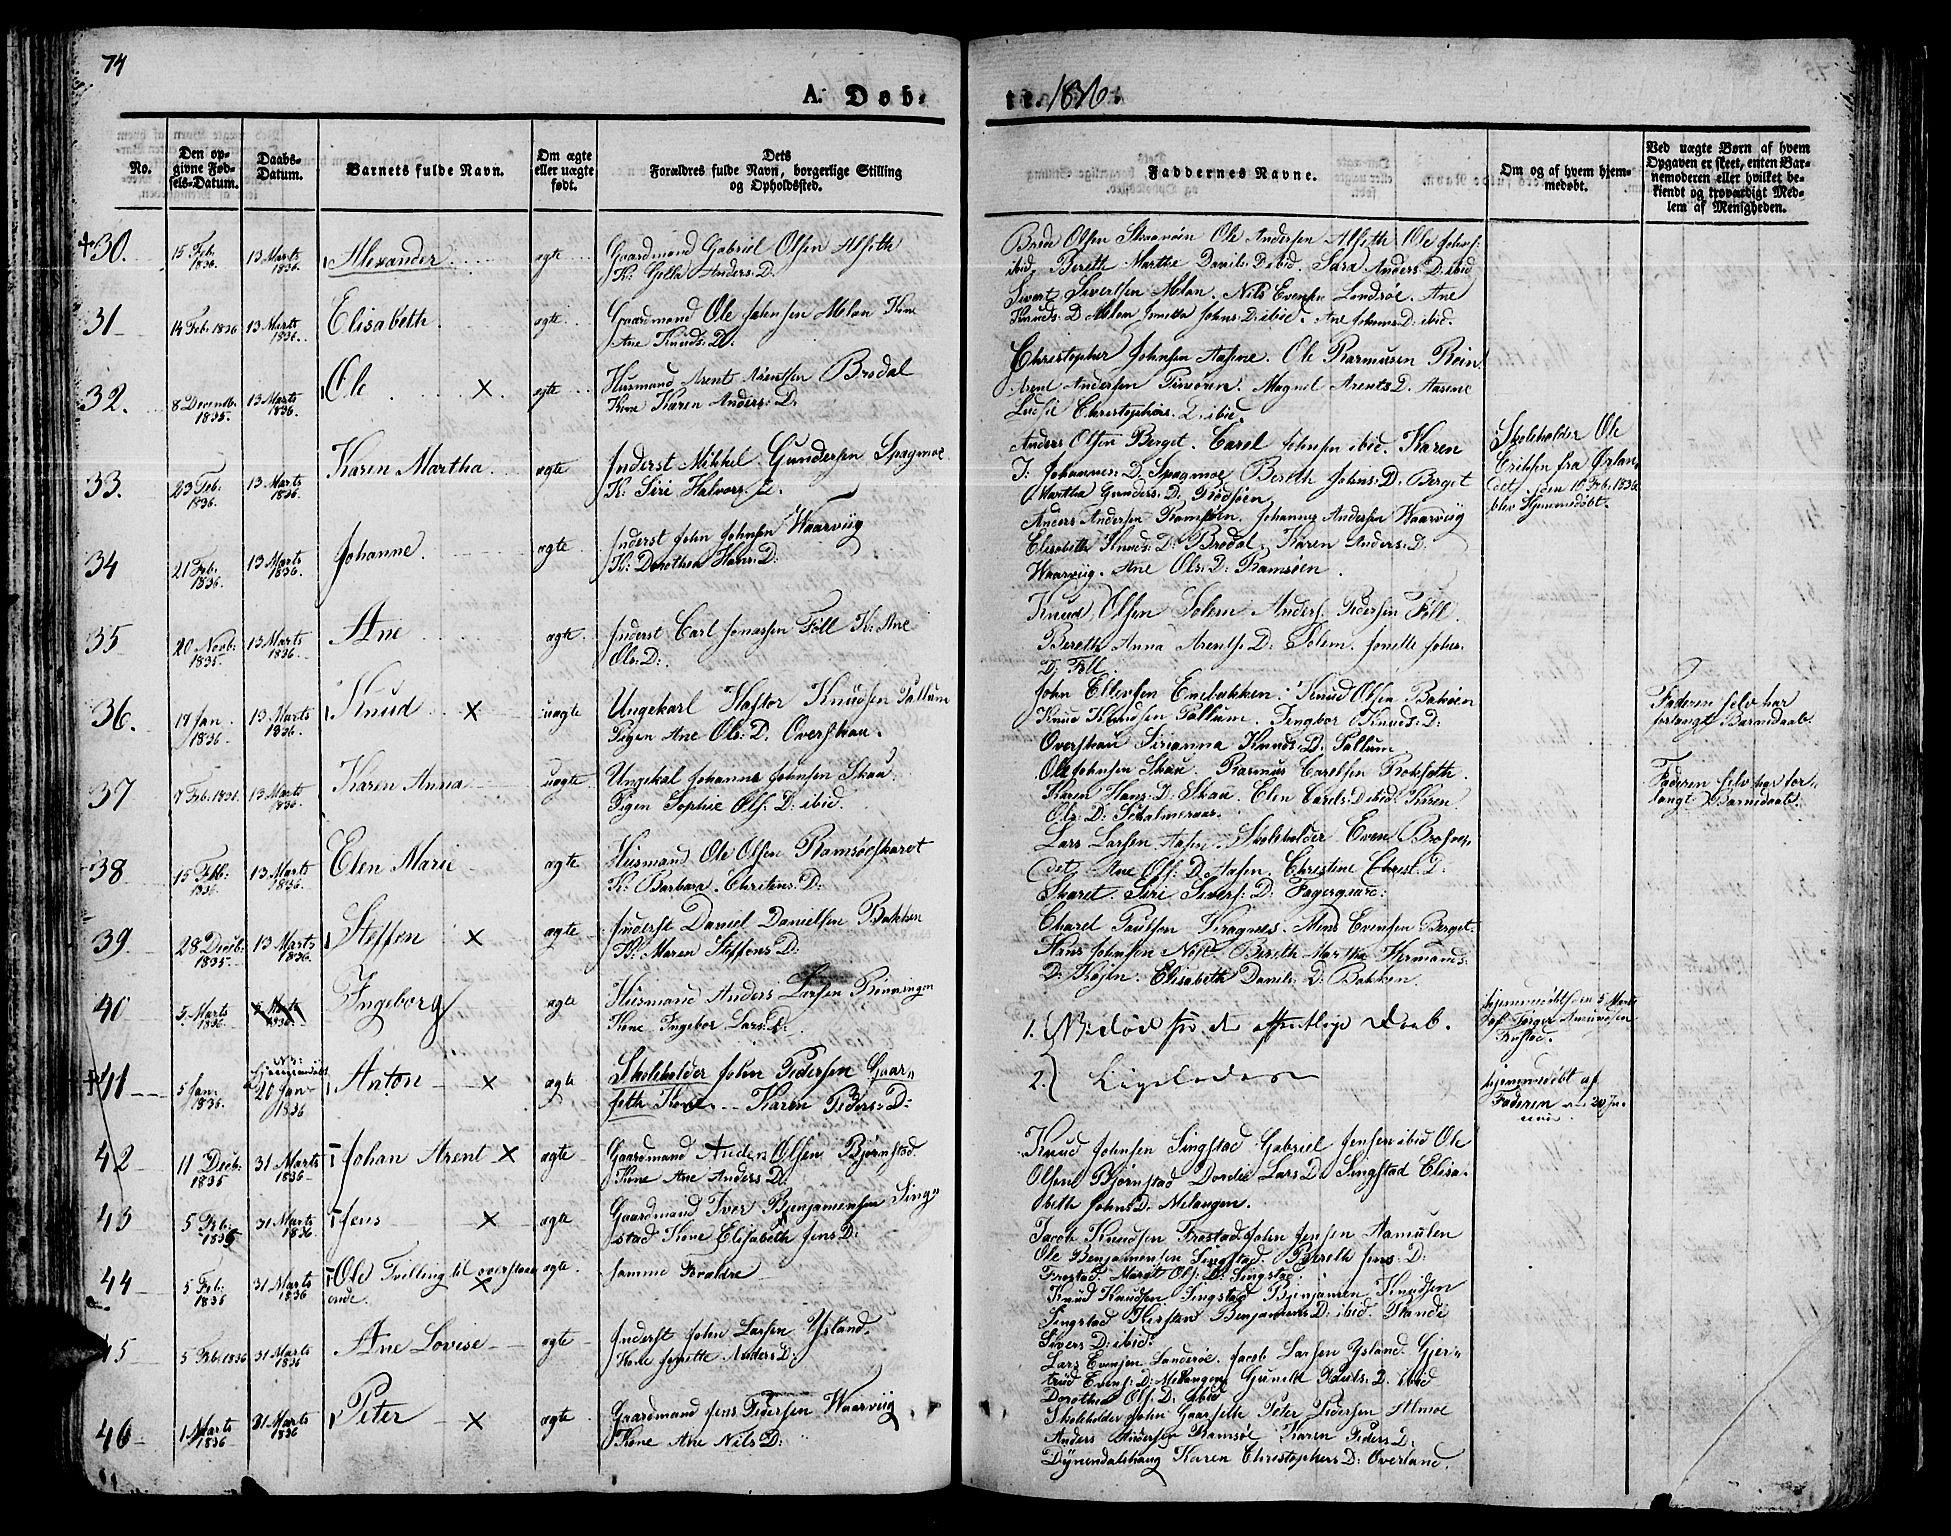 74
A. Døb-
te. 1836.
No.
Den op-
givne Fød-
sels-Datum.
Daabs-
Datum.
Barnets fulde Navn.
Om ægte
eller uægte
født.
Dets
Forældres fulde Navn, borgerlige Stilling
og Opholdssted.
Faddernes Navne.
Om og af hvem hjem-
medøbt.
Ved uægte Børn af hvem
Opgaven er skeet, enten Bar-
nemoderen eller hvilket be-
kiendt og troværdigt Med-
lem af Menigheden.
30. 15 Feb. 1836. 13 Marts 1836. Alexander. ægte
Gaardmand Gabriel Olsen Alseth
K: Anders: D.
Olsen Ole Andersen Alseth Ole Johns:
ibid. Bereth Marthe Daniels: D. ibid. Sara Anders: D. ibid
31 14 Feb. 1836 13 Marts 1836. Elisabeth. ægte
Gaardmand Ole Johnsen Melan Kone
Ane Knuds: D.
Sivert Sivertsen Melan. Nils Evensen Landsøe. Ane
Knuds: D. Melan Johns: D: ibid. Ane Johns: D: ibid.
32. 8 Decemb. 1835. 13 Marts 1836. Ole X ægte
Husmand Arent Arentsen Brødal
Kone Karen Anders: D.
Christopher Johnsen Aasene. Ole Rasmusen Rein
Arent Andersen Magnil Arents D. Aasene
Christophers. D. ibid.
33. 23 Feb. 1836. 13 Marts 1836. Karen Martha ægte
Inderst Mikkel Gundersen Spagmoe
K: Siri Halvors: D.
Anders Olsen Berget. Carel Johnsen ibid. Karen
Johannes: D. Spagmoe Bereth Johns: D. Berget
Martha Gunders: D.
Skoleholder Ole
Eriksen fra Ørlan-
det, den 10 Feb. 1836
blev Hjemmedøbt.
34 21 Feb. 1836. 13 Marts 1836. Johanne. ægte
Inderst John Johnsen Waarviig
K: Dorothea Hans: D.
Anders Andersen Ramsøen. Johannes Andersen Waarviig
Elisabeth Knuds: D: Brødal. Karen Anders: D.
Waarviig. Ane Ols: D: Ramsøen.
35 20 Novb: 1835. 13 Marts 1836. Ane ægte
Inderst Carl Jonassen Føll K: Ane
Ols: D:
Knud Olsen Solem Anders Pedersen Føll.
Bereth Anna Arents: D: Solem. Jonette Johns:
D: Føll
36. 17 Jan. 1836. 13 Marts 1836. Knud X uægte
Ungekarl Haftor Knudsen Pallum
Pigen Ane Ols: D. Overskau.
John Ellevsen Enebakken. Knud Olsen
Knud Knudsen Pallum. Ingbor Knuds: D:
Overskau Sirianna Knuds: D: Pallum
Faderen selv har
forlangt Barnedaab.
37 7 Feb. 1836. 13 Marts 1836. Karen Anna uægte
Ungekal Johannes Johnsen Skau
Pigen Sophie Ols: D: ibid.
Ole Johnsen Skau. Rasmus Carelsen Rokseth.
Karen Hans: D: Skau. Elen Carels: D ibid. Karen
Ols: D: Schalmeraas.
Faderen selv har for-
langt Barnedaab.
38 15 Feb. 1836. 13 Marts 1836. Elen Marie ægte
Husmand Ole Olsen Ramsøeskaret
K: Barbara Christens: D:
Lars Larsen Aasen. Skoleholder Even
Ane Ols: D. Aasen. Christine Christ: D.
Skaret. Siri Sivers: D: Fagergaard:
39. 28 Decb: 1835 13 Marts 1836. Steffen X ægte
Inderst Daniel Danielsen Bakken
K: Maren Steffens D.
Charel Paulsen Kragnæs. Mons Evensen Berget.
Hans Johnsen Bereth Martha Hermands:
D: Elisabeth Daniels: D: Bakken.
40 5 Marts 1836. 1836. Ingeborg ægte
Husmand Anders Larsen Rønningen
Kone Ingebor Lars: D:
1. død før den offentlige Daab.
hjemmedøbt den 5 Marts
41 5 Jan. 1836. 20 Jan 1836 Anton X ægte
Skoleholder John Pedersen Gaar-
seth Kone Karen Peders: D:
2. Ligeledes
hjemmedøbt af
Faderen 20 Ja-
nuar
42 11 Decb: 1835 31 Marts 1836 Johan Arent X ægte
Gaardmand Anders Olsen Bjørnstad
Kone Ane Anders D.
Knud Johnsen Singstad Gabriel Jensen ibid Ole
Olsen Bjørnstad Dordie Lars D: Singstad Elisa-
beth Johns D. Melangen.
43 5 Feb: 1836 31 Marts 1836 Jens X ægte
Gaardmand Iver Benjaminsen Sing-
stad Kone Elisabeth Jens D:
Jacob Knudsen Frostad. John Jensen Aamulen
Ole Benjaminsen Singstad. Bereth Jens D:
Frostad Marit Ols: D: Singstad:
44 5 Feb: 1836 31 Marts 1836 Ole Tvilling til overstaa-
ende. X ægte
samme Forældre
Knud Knudsen Singstad Benjamin Knudsen
Singstad Kirsten Benjamins D: ibid. Randi
Sivers D: ibid:
45 5 Feb: 1836 31 Marts 1836 Ane Lovise ægte
Inderst John Larsen Ysland.
Kone Jonette Anders D:
Lars Evensen Landsøe. Jacob Larsen Ysland. Gjer-
trud Evens: D: Melangen Gunild Pauls: D. ibid
Dorothea Ols: D: ibid
46 1 Marts 1836 31 Marts 1836 Peter X ægte
Gaardmand Jens Pedersen Waarviig
Kone Ane Nils D:
Skoleholder John Gaarseth Peter Pedersen Almoe
Anders Andersen Ramsøe Karen Peders D:
Dynendalshaug Karen Christophers D: Overland.